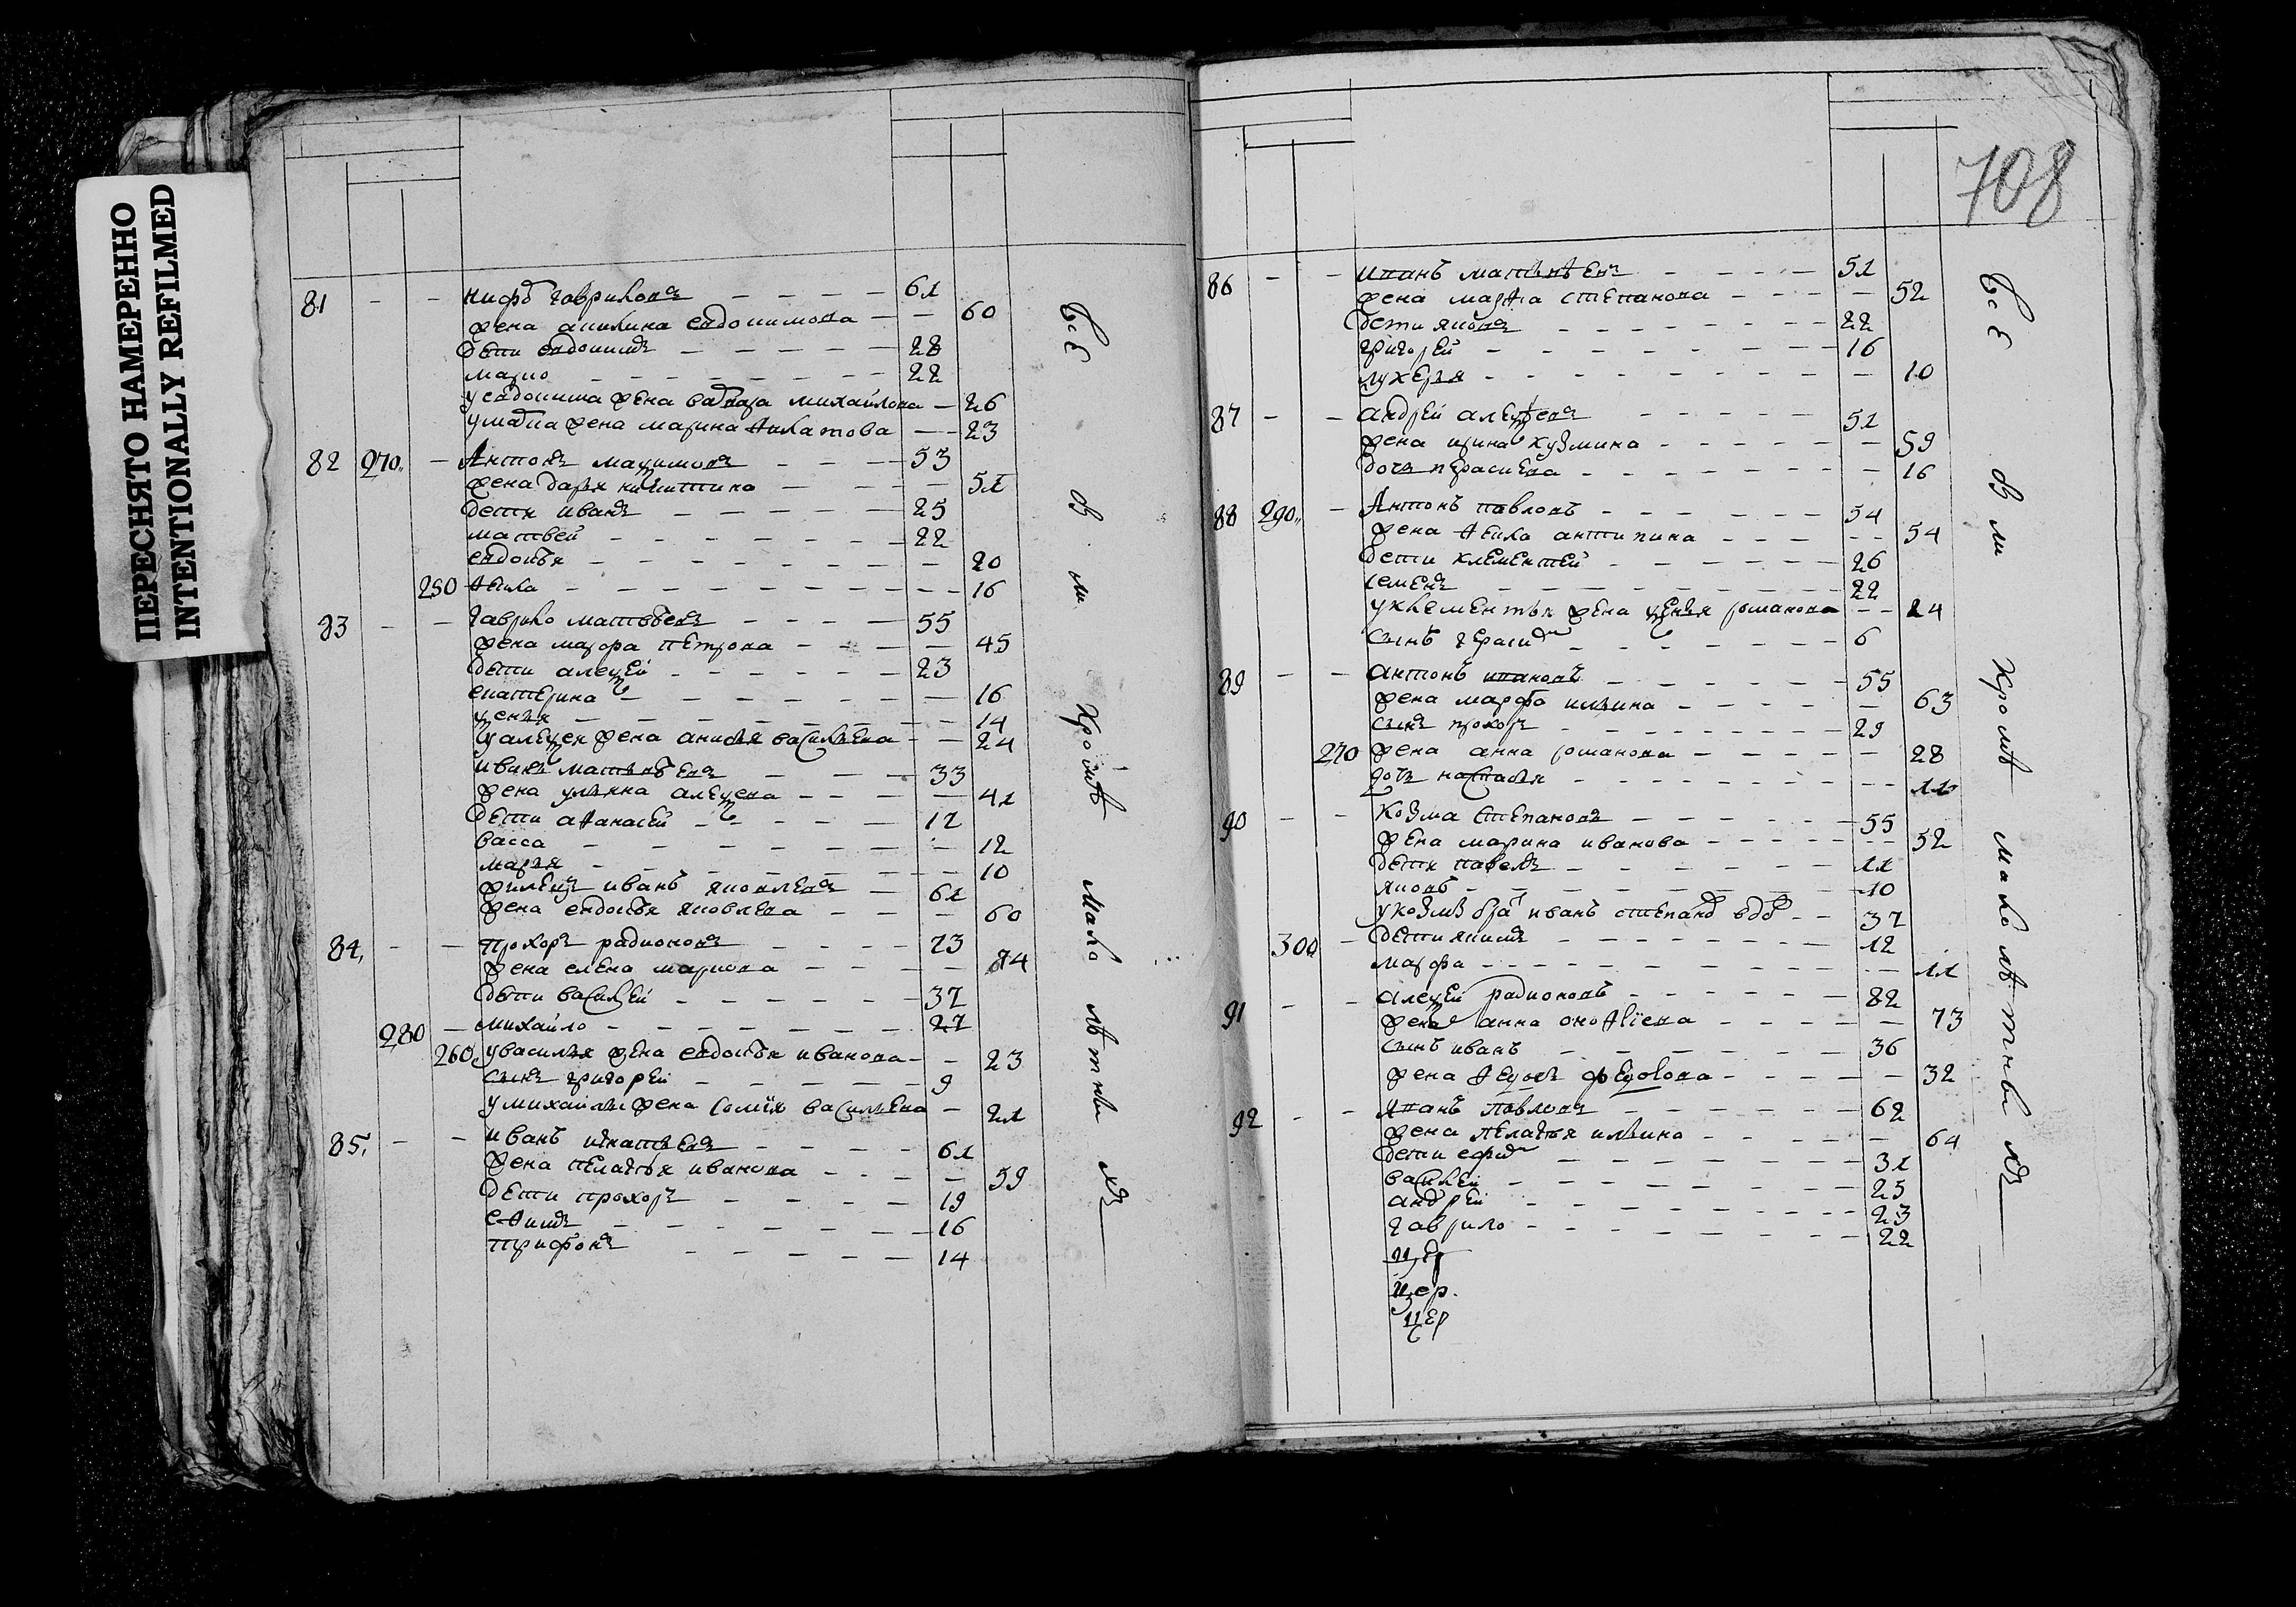 ПЕРЕСНЯТО НАМЕРЕННО
INTENTIONALLY REFILMED
81 - - никифоръ гавриловъ - - - - 61
жена акилина евдокимова - - 60
дети евдокимъ - - - - - 28
марко - - - - - - - 22
у евдокима жена варвара михайлова - 26
у марка жена марина - - 23
82 270 - Антонъ маѯимовъ - - - 53
жена дарья никитина - - - - 51
дети иванъ - - - - - 25
матвей - - - - - - 22
евдокья - - - - - - - 20
250 ѳекла - - - - - - - - 16
83 - - гаврило матвѣевъ - - - - 55
жена марфа петрова - - - - 45
дети алеѯей - - - - - - 23
екатерина - - - - - - 16
ѯенья - - - - - - - 14
у алеѯея жена анисья васильева - - 24
иванъ матвѣевъ - - - 33
жена ульяна алеѯеева - - - - 41
дети аѳанасей - - - - - 17
васса - - - - - - - 12
марья - - - - - - - 10
жилецъ иванъ яковлевъ - 61
жена евдокья яковлева - - - 60
84, - - прохоръ радионовъ - - - - 73
жена елена маркова - - - - 74
дети василей - - - - - 37
280 - михайло - - - - - - 27
260 у василья жена евдокья иванова - - 23
сынъ григорей - - - - - 9
у михайлы жена софия васильева - 21
85, - - иванъ игнатьевъ - - - - 61
жена пелагья иванова - - - - 59
дети прохоръ - - - - 19
еѳимъ - - - - - - 16
трифонъ - - - - - 14
Все
Кромѣ
мало
лѣтны
хъ
708
86 - - иванъ матвѣевъ - - - - 51
жена марѳа степанова - - - - 52
дети яковъ - - - - - - 22
григорей - - - - - - - 16
лукерья - - - - - - - 10
87 - - андрей алеѯеевъ - - - - - 51
жена ирина кузмина - - - - - 59
дочь - - - - - - 16
88 290 - Антонъ павловъ - - - - - - 54
жена ѳекла антипина - - - - - 54
дети клементей - - - - - - 26
семенъ - - - - - - - 22
у клементья жена ѯенья романова - - 24
сынъ герасимъ - - - - - 6
89 - - антонъ ивановъ - - - - - - 55
жена марфа ильина - - - - - 63
сынъ прохоръ - - - - - - - 29
270 жена анна романова - - - - - 28
дочь настасья - - - - - - - - 11
90 - - козма степановъ - - - - - - 55
жена марина иванова - - - - - - 52
дети павелъ - - - - - - 11
яковъ - - - - - - - 10
у козмы братъ иванъ степановъ вдовъ - - 37
300 - дети якимъ - - - - - - - 12
марфа - - - - - - - - 11
91 - - алеѯей радионовъ - - - - - - 82
жена анна оноѳриева - - - - - 73
сынъ иванъ - - - - - - 36
жена - - - - - 32
92 - - иванъ павловъ - - - - - - 62
жена пелагья ильина - - - - - 64
дети ефимъ - - - - - - 31
василей - - - - - - - 25
андрей - - - - - - - - 23
гаврило - - - - - - - 22
Все
Кромѣ
мало
лѣтны
хъ